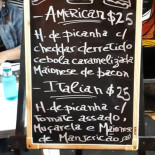 American $25
H. de picanha c/
cheddar derretido
cebola caramelizada
Maionese de bacon
Italian $25
H. de picanha c/
Tomate assado,
Muçarela e Maionese
de Manjericão